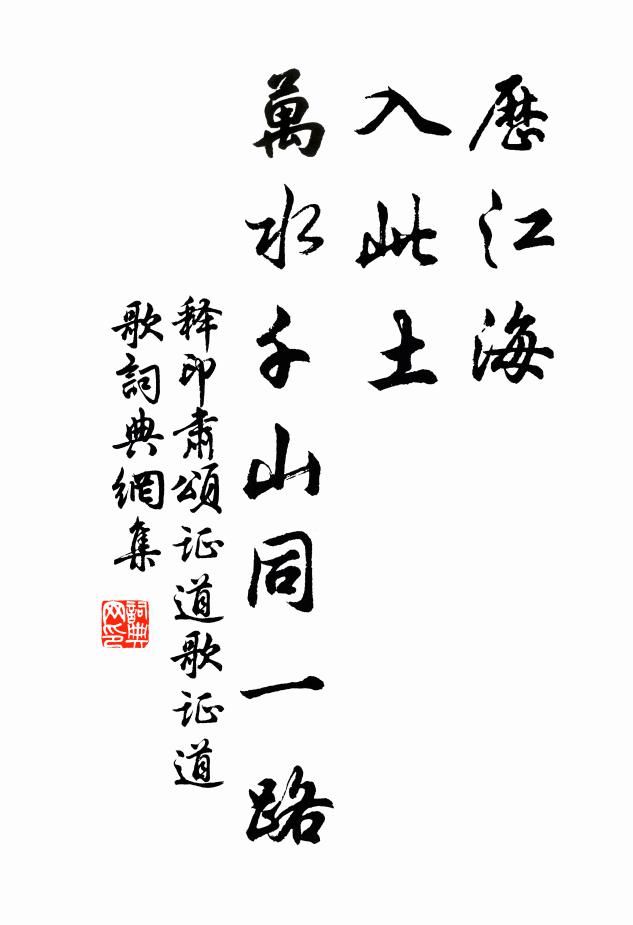 歷江海
入此土
萬水千山同一路
释印肅頌证道歌证道
歌詞典網集
詞典
网印